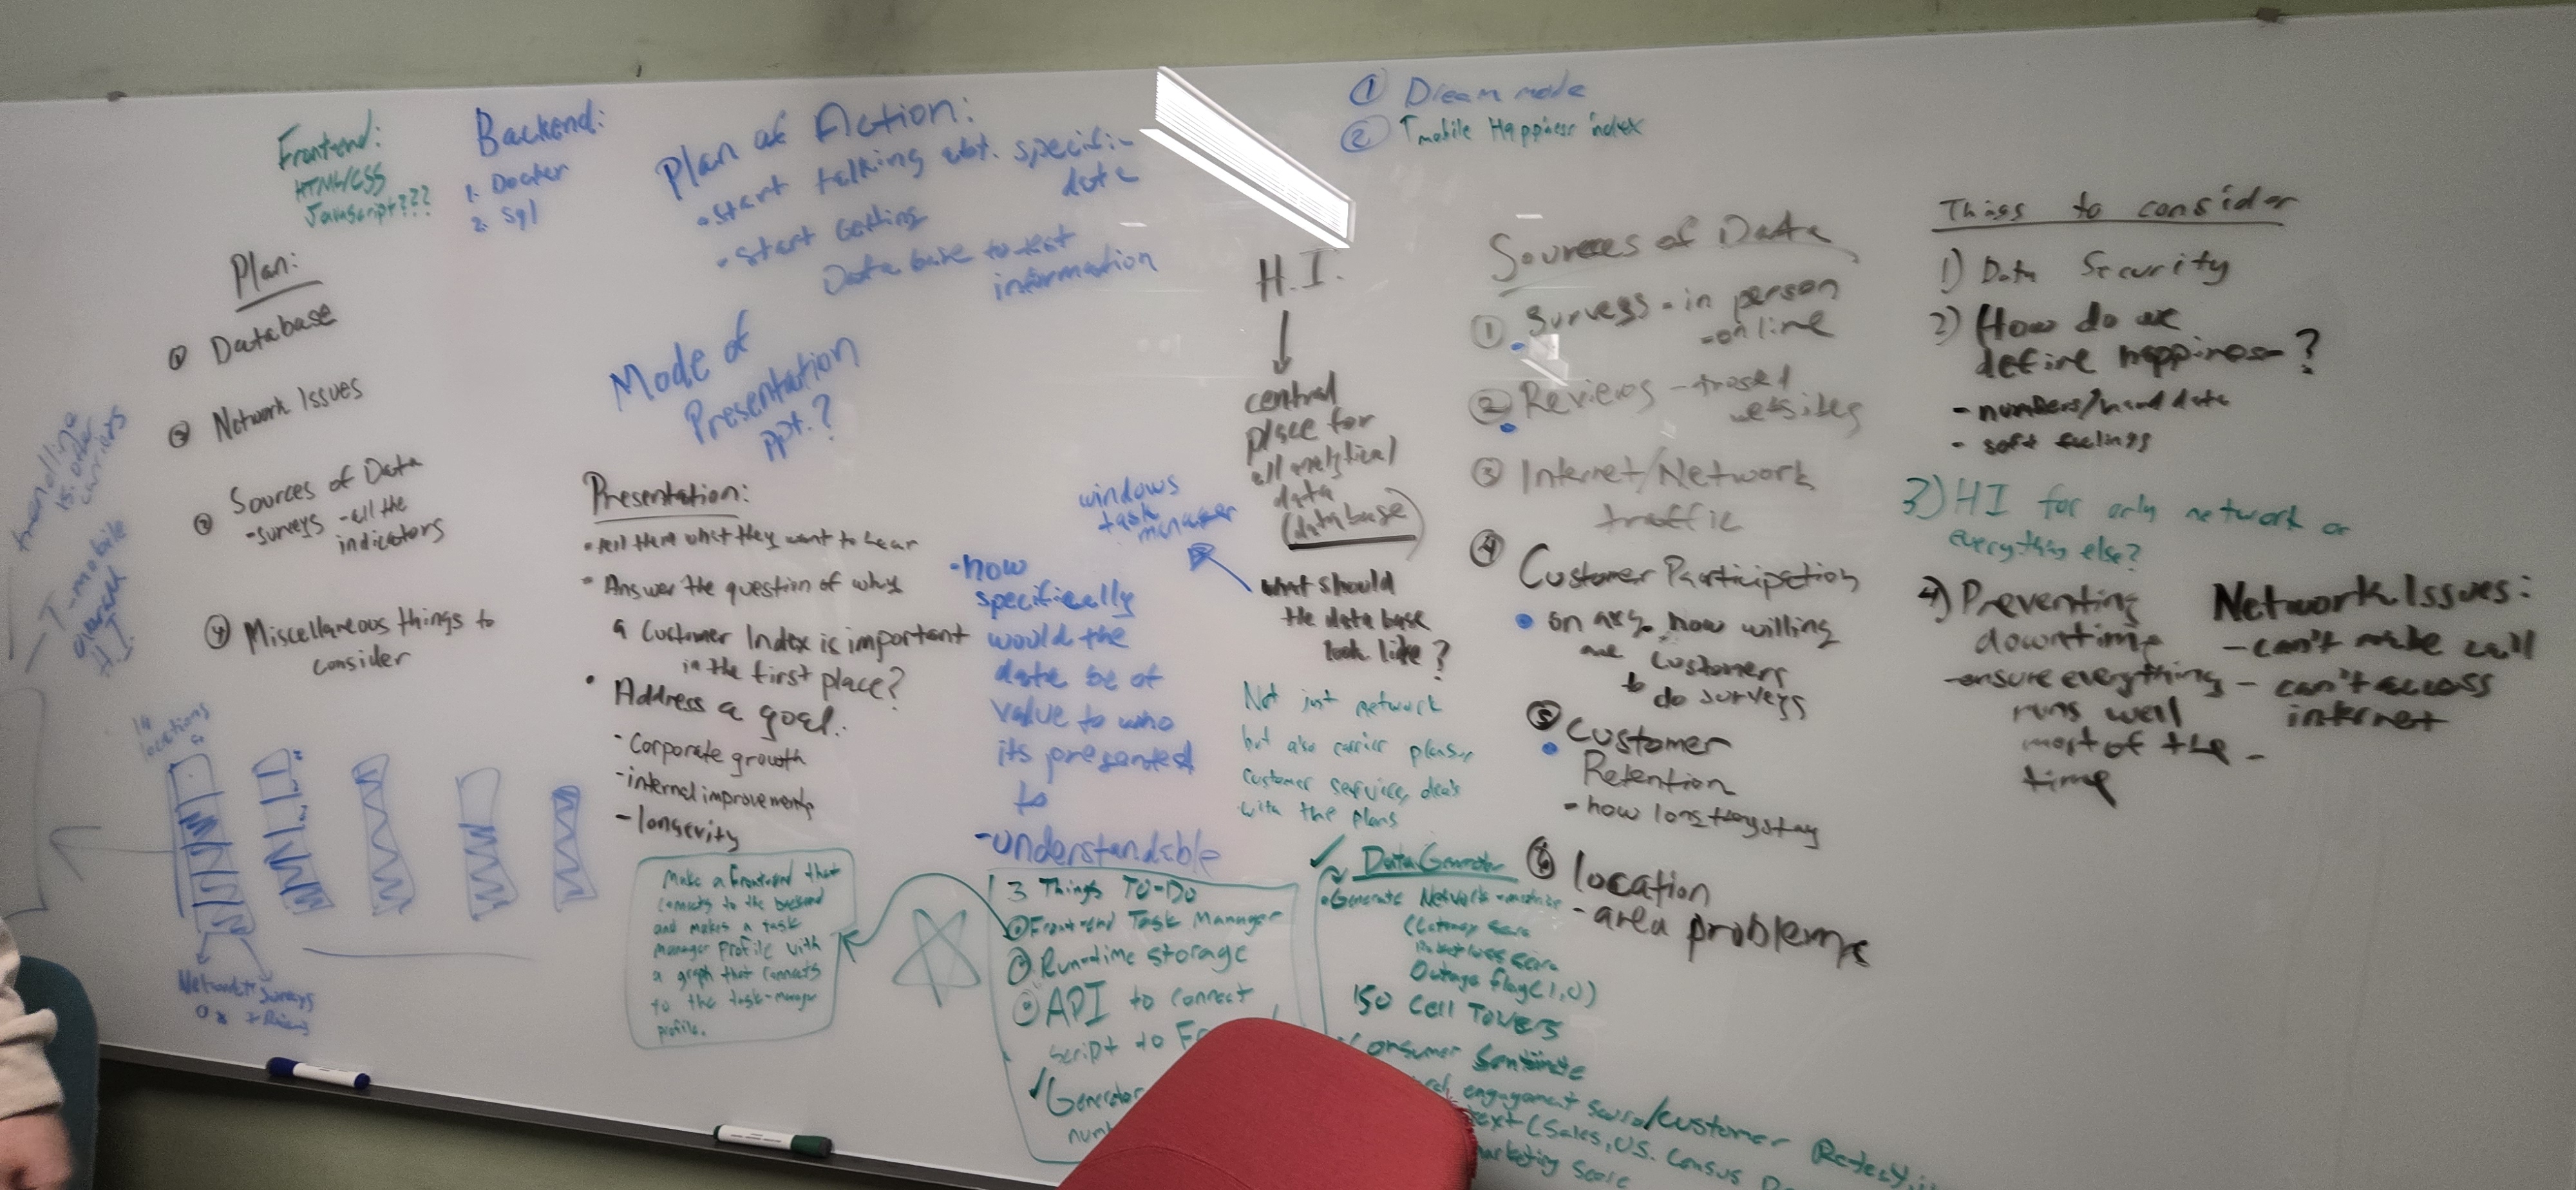 ① Dream mode
② Tmobile Happiness index
Frontend:
HTML/CSS
Javascript???
Backend:
1. Docker
2. Sql
Plan of Action:
• start talking abt. specific
data
• start getting
Data base to test
information
Plan:
① Database
② Network Issues
③ Sources of Data
- surveys - all the
indicators
④ Miscellaneous things to
consider
trendline
vs. other
carriors
T-mobile
overall
H.I.
Mode of
Presentation
ppt.?
Presentation:
• tell them what they want to hear
• Answer the question of why
a Customer Index is important
in the first place?
• Address a goal..
- Corporate growth
- internal improvements
- longevity
14
locations
Network
Surveys
Make a frontend that
connects to the backend
and makes a task
manager profile with
a graph that connects
to the task-manager
profile.
windows
task
manager
- how
specifically
would the
data be of
value to who
its presented
to
- understandable
H.I.
central
place for
all analytical
data
(database)
what should
the data base
look like?
Not just network
but also carrier plans,
customer service, deals
with the plans
3 Things TO-DO
① Front-end Task Manager
② Run-time storage
③ API to connect
script to
✓ Generator
Data Generator
• Generate Network
(Latency score
Packet loss score
Outage flag (1,0)
150 Cell Towers
Consumer Sentiment
engagement score/Customer
(Sales, U.S. Census
marketing score
Sources of Data
① Surveys - in person
- online
② Reviews - trusted
websites
③ Internet/Network
traffic
④ Customer Participation
• on avg. how willing
are customers
to do surveys
⑤ Customer
Retention
- how long they stay
⑥ location
- area problems
Things to consider
1) Data Security
2) How do we
define happiness?
- numbers/hard data
- soft feelings
3) HI for only network or
everything else?
4) Preventing
downtime
- ensure everything
runs well
most of the
time
Network Issues:
- can't make call
- can't access
internet
-